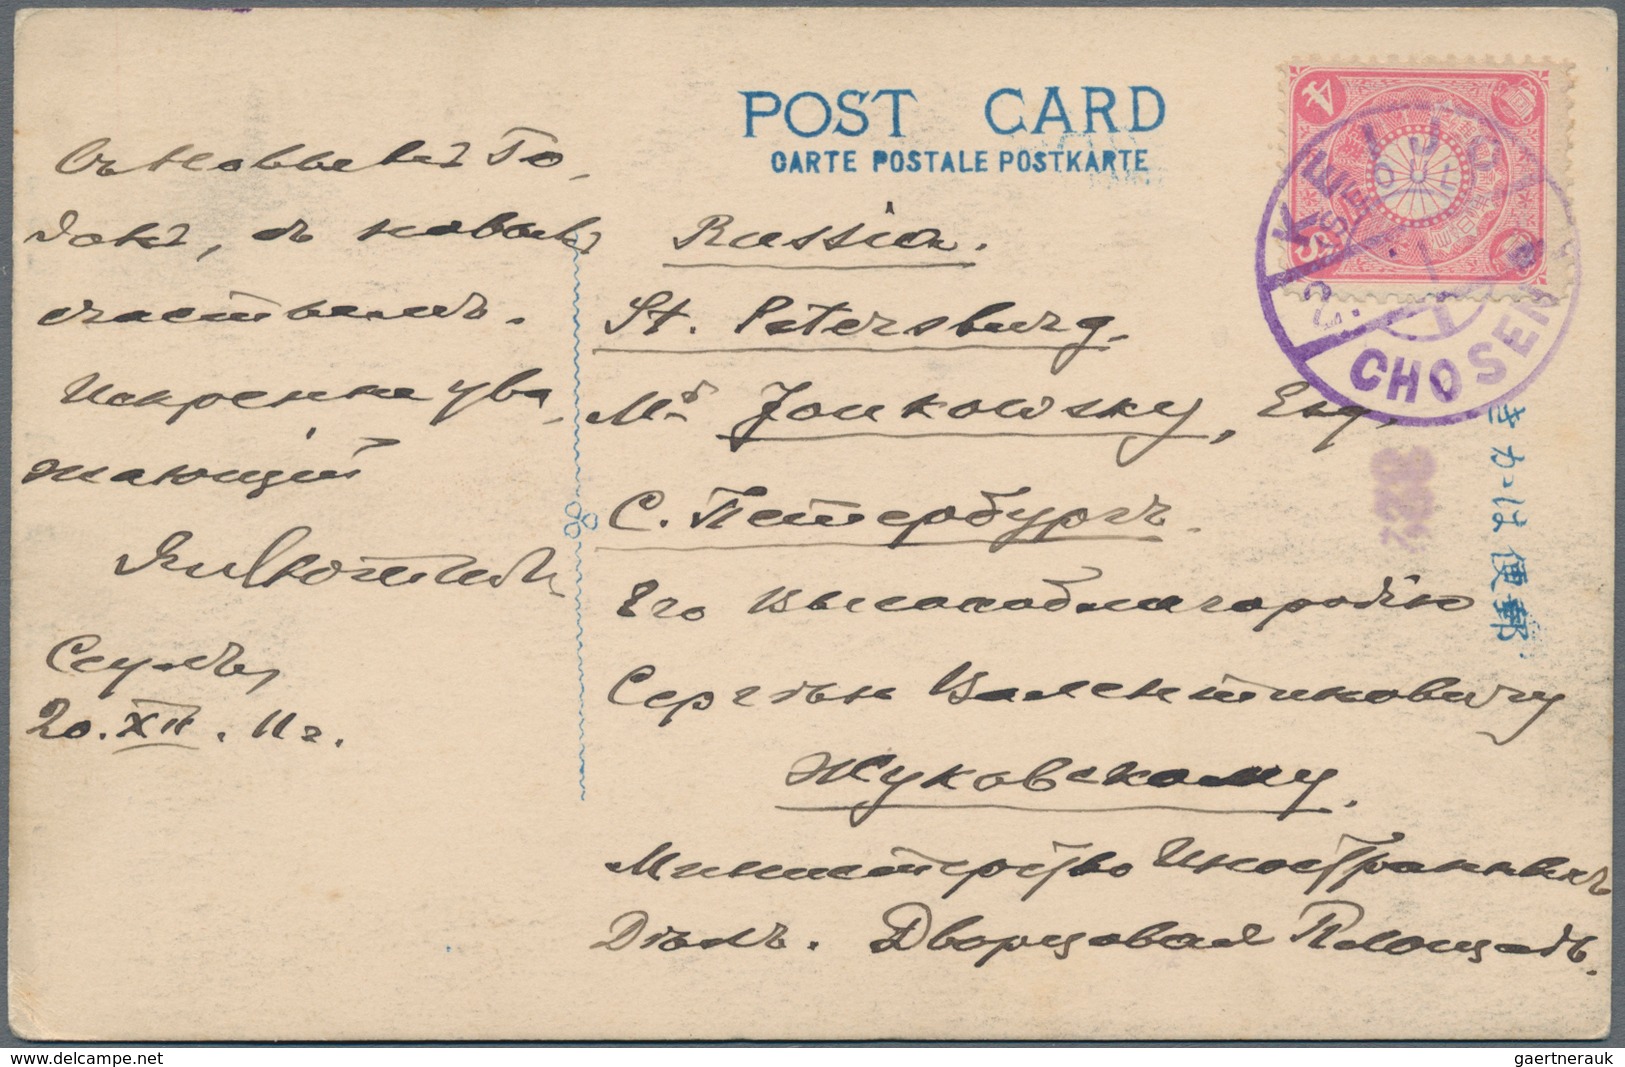 POST CARD
CARTE POSTALE POSTKARTE
Съ Новымъ Го-
домъ, съ новымъ
счастьемъ.
Искренно ува-
жающій
Сеулъ,
20.XII.11г.
Russia.
St. Petersburg.
Mr Joukowsky, Esq,
С. Петербургъ.
Его Высокоблагородію
Сергѣю Валентиновичу
Жуковскому.
Министерство Иностранныхъ
Дѣлъ. Дворцовая Площадь.
KEIJO
SEOUL
CHOSEN
4
Sn
郵便はかき
delcampe.net
gaertnerauk